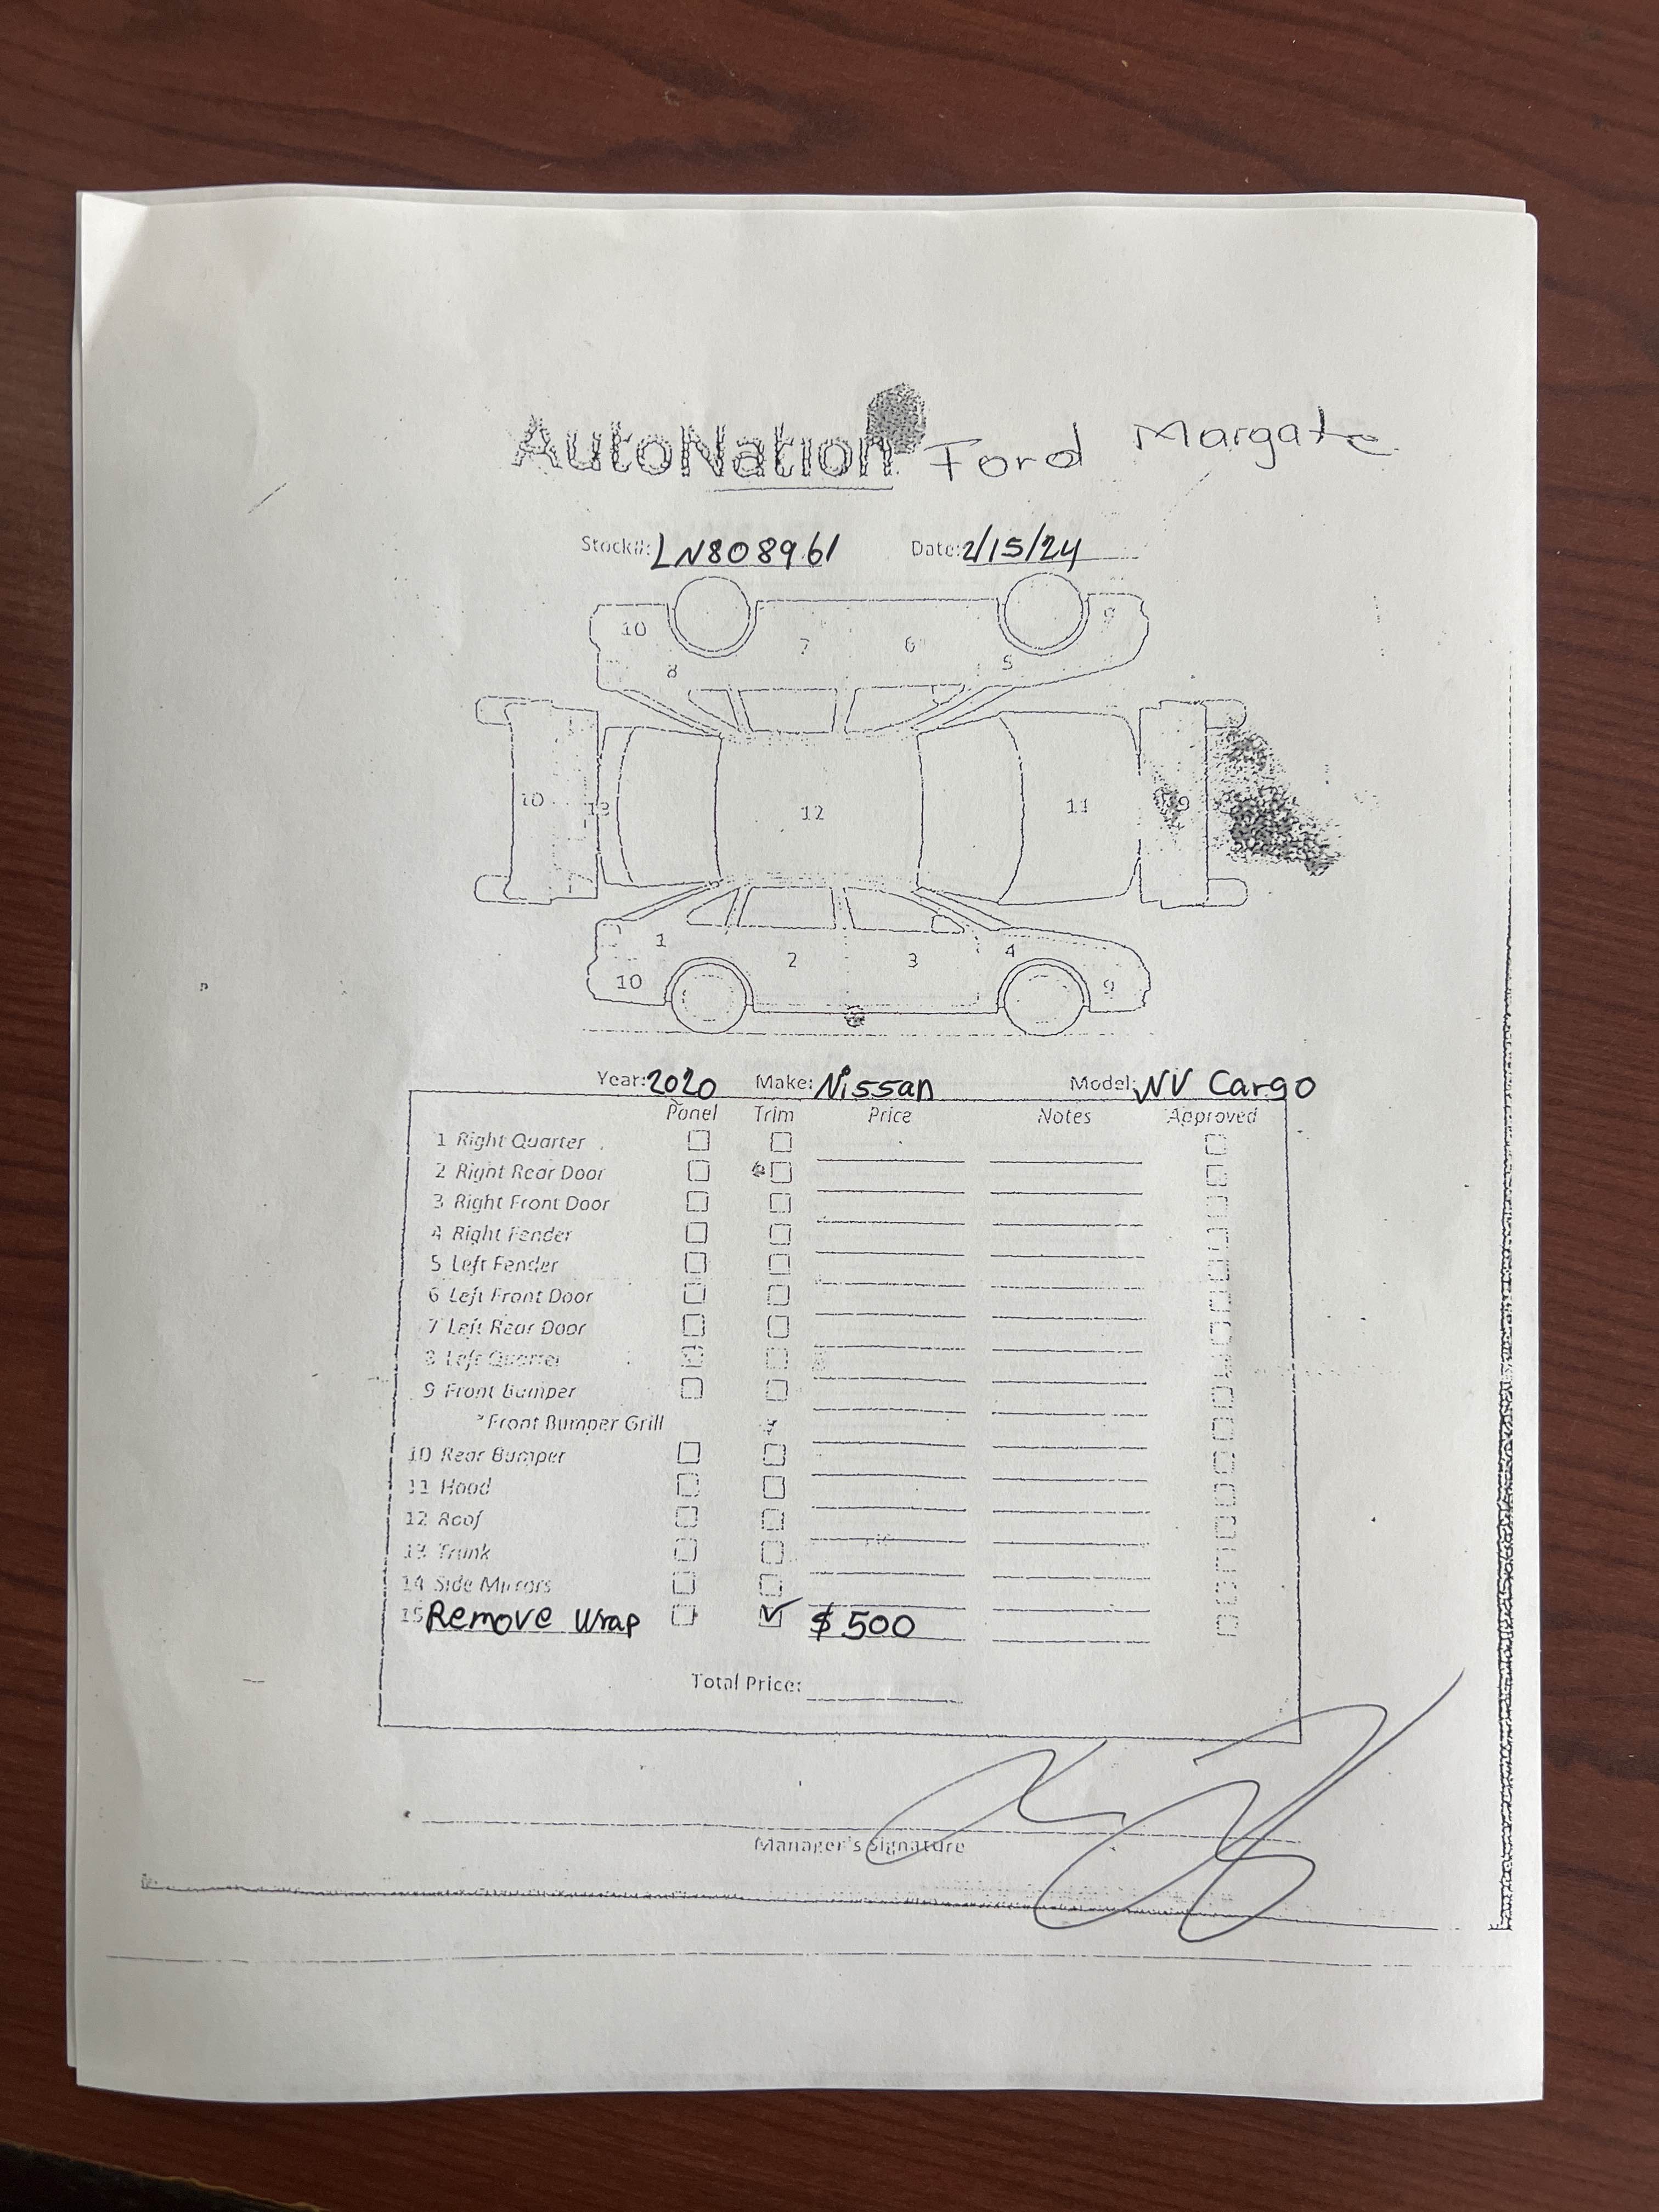 AutoNation Ford Margate
Stock#: LN808961 Date: 2/15/24
10 7 6 9
8 5
10 13 12 11 9
1 2 3 4
10 9
Year: 2020 Make: Nissan Model: NV Cargo
Panel Trim Price Notes Approved
1 Right Quarter
2 Right Rear Door
3 Right Front Door
4 Right Fender
5 Left Fender
6 Left Front Door
7 Left Rear Door
8 Left Quarter
9 Front Bumper
*Front Bumper Grill
10 Rear Bumper
11 Hood
12 Roof
13 Trunk
14 Side Mirrors
15 Remove Wrap $500
Total Price:
Manager's Signature